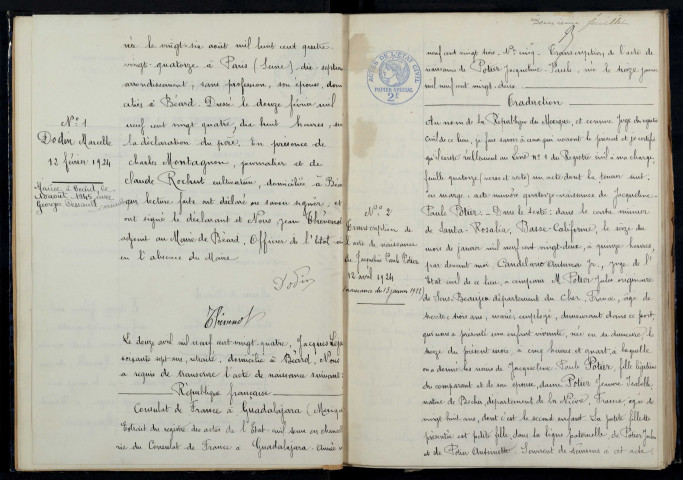 née le vingt-six août mil huit cent quatre
vingt-quatorze à Paris (Seine), dix septième
arrondissement, sans profession, son épouse, domi
ciliés à Béard. Dressé le douze février mil
neuf cent vingt quatre, dix huit heures, sur
la déclaration du père. En présence de
Charles Montagnon, journalier et de
Claude Rochert cultivateur, domiciliés à Béard
qui lecture faite ont déclaré ou savoir signer, et
ont signé le déclarant et Nous, Jean Thévenot
adjoint au Maire de Béard, Officier de l'État civil
en l'absence du Maire
Nº 1
Dodin Marcelle
12 février 1924
Mariée à Béard, le
août 1945 avec
Georges
Dodin
Thévenot
Le douze avril mil neuf cent vingt-quatre, Jacques
soixante sept ans, retraité, domicilié à Béard, Nous
a requis de transcrire l'acte de naissance suivant:
République française
Consulat de France à Guadalajara
Extrait du registre des actes de l'État civil tenu en chancelle
rie du Consulat de France à Guadalajara. Année mil
feuillet
ACTES DE L'ÉTAT CIVIL
PAPIER SPÉCIAL
2F
neuf cent vingt trois. Nº cinq. Transcription de l'acte de
naissance de Potier Jacqueline Paule, née le treize janvier
mil neuf cent vingt-deux
Traduction
Au nom de la République du Mexique, et comme Juge du registre
civil de ce lieu, je fais savoir à ceux qui verront le présent et je certifie
qu'il existe réellement au Livre nº 1 du Registre civil à ma charge,
feuille quatorze (recto et verso) un acte dont la teneur suit:
en marge: acte numéro quatorze-naissance de Jacqueline-
Paule Potier - Dans le texte: dans le centre minier
de Santa-Rosalia, Basse-Californie, le seize du
mois de janvier mil neuf cent vingt-deux, à quinze heures,
par devant moi Candelario Jr, juge de l'
État civil de ce lieu, a comparu M. Potier Jules originaire
de Sens-Beaujeu département du Cher, France, âgé de
trente-trois ans, marié, employé, demeurant dans ce port,
qui nous a présenté son enfant vivante, née en sa demeure, le
treize du présent mois à cinq heures et quart, à laquelle
on a donné les noms de Jacqueline Paule Potier, fille légitime
du comparant et de son épouse, dame Potier Jeanne Isabelle,
native de département de la Nièvre, France, âgée de
vingt huit ans, dont c'est le second enfant. La petite fillette
présentée est petite fille, dans la ligne paternelle, de Potier Jules
et de Potier Antoinette. Servirent de témoins à cet acte
Nº 2
Transcription de
l'acte de naissance
de Jacqueline Paule Potier
12 avril 1924
(naissance du 13 janvier 1922)